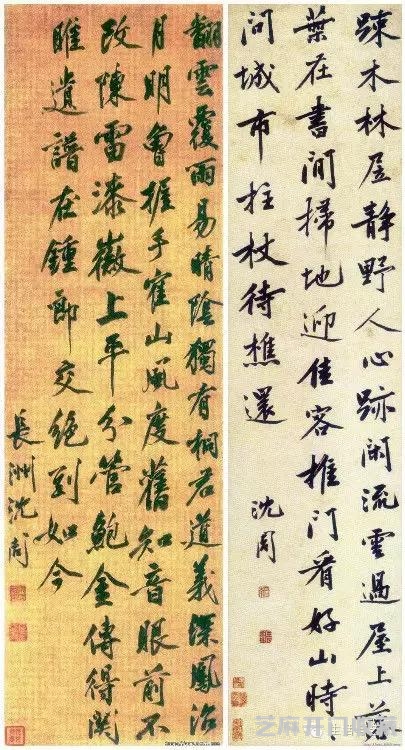 踈木林居静野人心跡闲流雲過屋上落
葉在書間掃地迎佳客推門看好山時
問城市拄杖待樵還
沈周
翻雲覆雨易晴陰獨有桐君道義深鳳沼
月明曾握手寉山風度舊知音眼前不
改陳雷漆徽上平分管鮑金傳得関
雎遺譜在鍾郎交絶到如今
長洲沈周
芝麻开门收藏